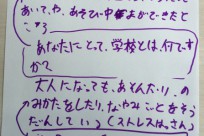 あいてや、あそび中まよかできたと
ころ
あなたにとって、学校とは、何です
か？
大人になっても、あそんだり、の
みかたをしたり、なやみごとをそう
だんしている(ストレスはっさん)